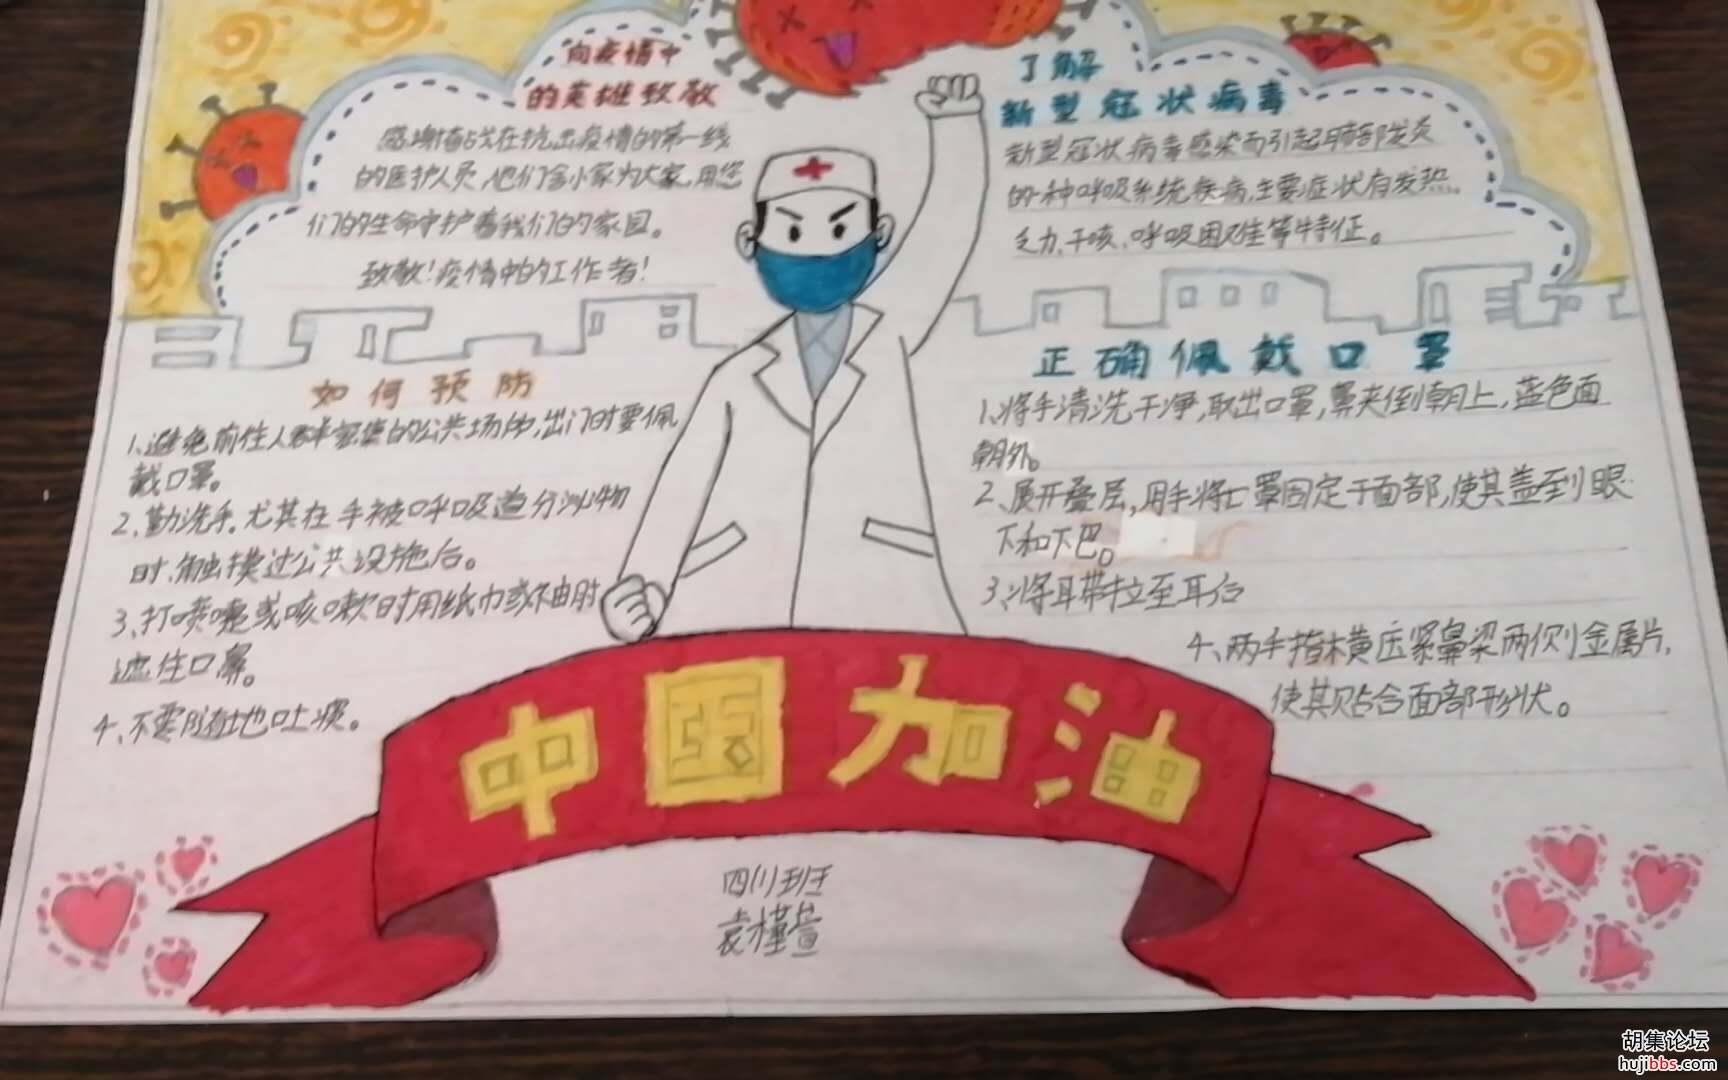 向疫情中
的英雄致敬
感谢奋战在抗击疫情的第一线
的医护人员,他们舍小家为大家,用您
们的生命守护着我们的家园。
致敬!疫情中的工作者!
了解
新型冠状病毒
新型冠状病毒感染而引起肺部发炎
的一种呼吸系统疾病,主要症状有发热。
乏力、干咳、呼吸困难等特征。
如何预防
1、避免前往人群密集的公共场所,出门时要佩
戴口罩。
2、勤洗手。尤其在手被呼吸道分泌物
时、触摸过公共设施后。
3、打喷嚏或咳嗽时用纸巾或袖肘
遮住口鼻。
4、不要随地吐痰。
正确佩戴口罩
1、将手清洗干净,取出口罩,鼻夹侧朝上,蓝色面
朝外。
2、展开叠层,用手将口罩固定于面部,使其盖到眼
下和下巴。
3、将耳带拉至耳后
4、两手指横压紧鼻梁两侧金属片,
使其贴合面部形状。
中国加油
四川班
袁槿萱
胡集论坛
hujibbs.com